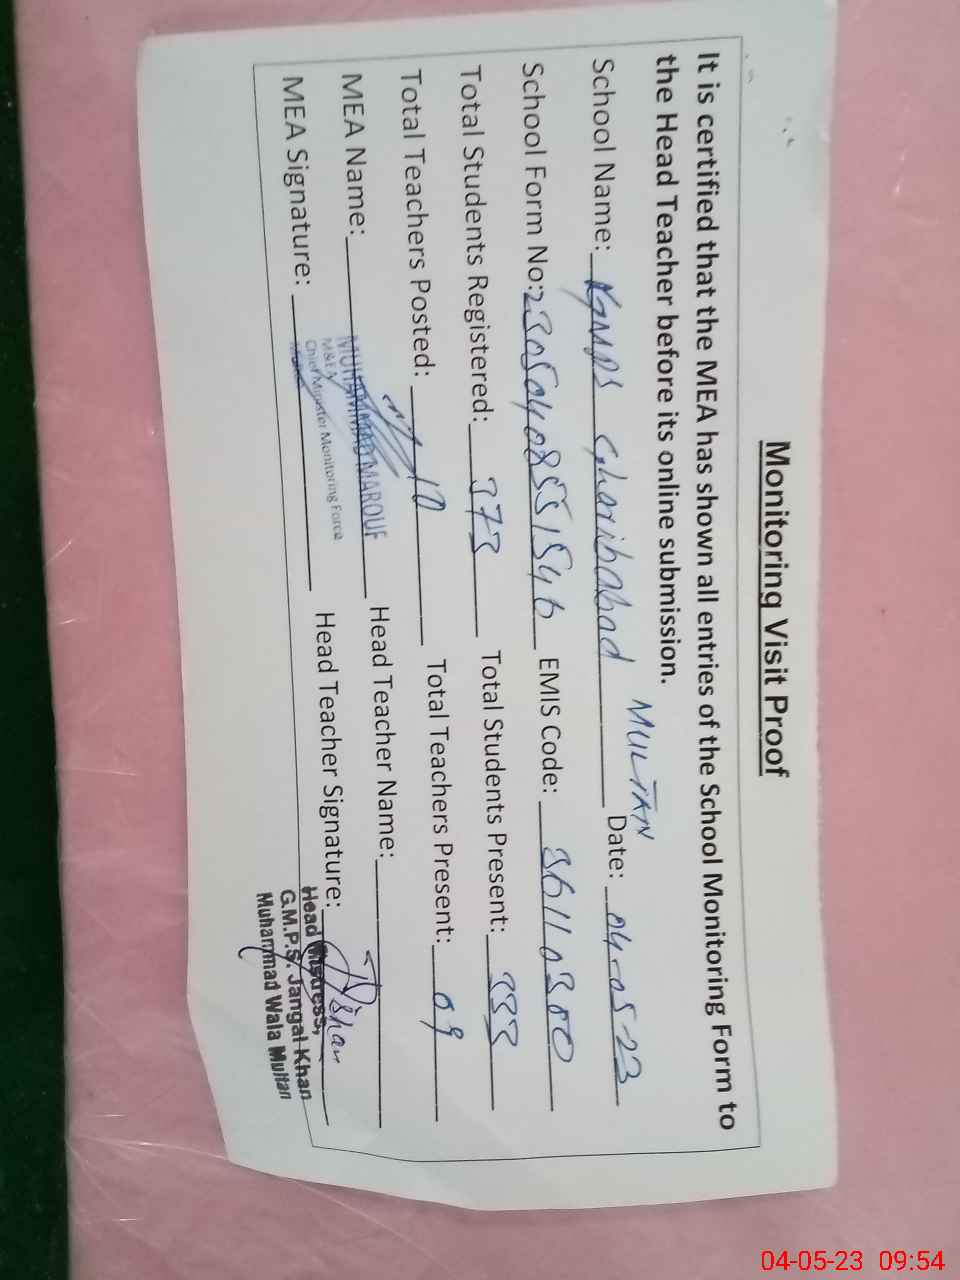 Monitoring Visit Proof
It is certified that the MEA has shown all entries of the School Monitoring Form to
the Head Teacher before its online submission.
MULTAN
School Name: Gharibabad Date: 04-05-23
School Form No: EMIS Code: 36110300
Total Students Registered: 373 Total Students Present: 333
Total Teachers Posted: 10 Total Teachers Present: 09
MEA Name: MUHAMMAD MAROUF Head Teacher Name:
M&EA
Chief Minister Monitoring Force
Multan
MEA Signature: Head Teacher Signature:
Head Mistress,
G.M.P.S. Jangal Khan
Muhammad Wala Multan
04-05-23 09:54